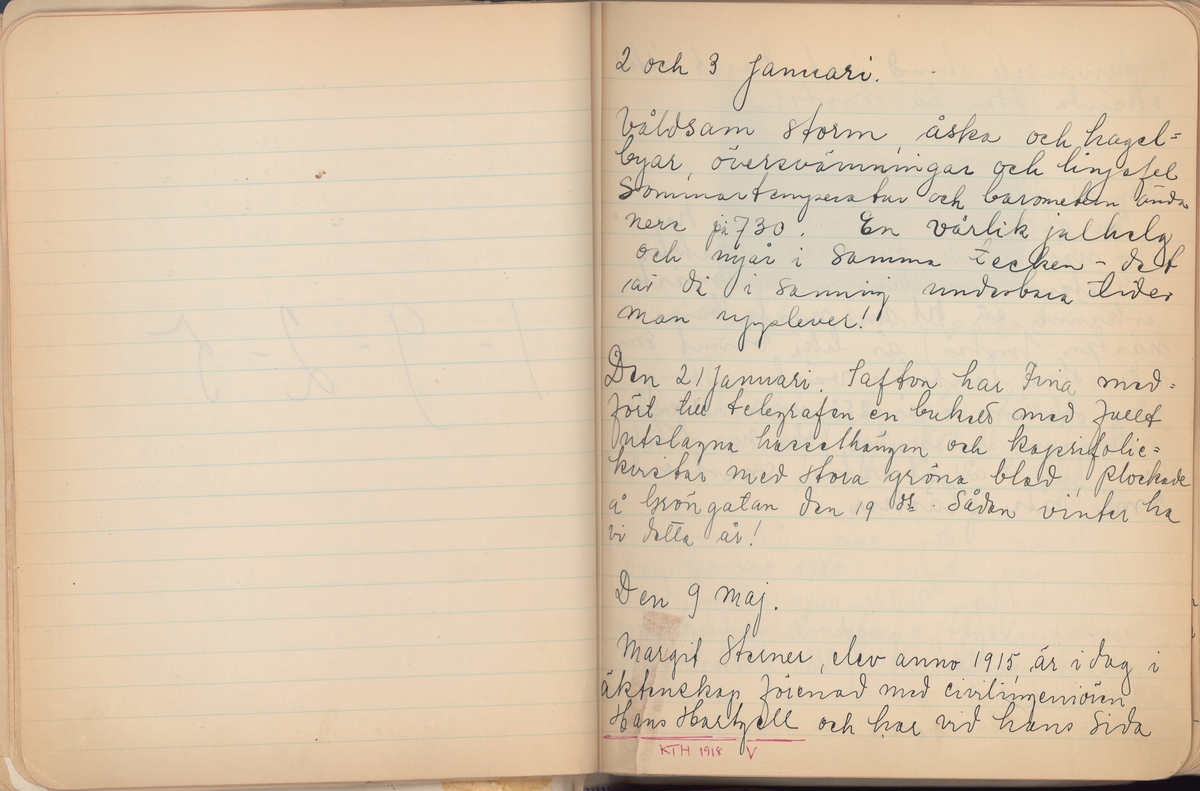 2 och 3 januari.
Våldsam storm, åska och hagel=
byar, översvämningar och linjefel
Sommartemperatur och barometern ända
nere på 730. En vårlik julhelg
och nyår i samma tecken – det
är då i sanning underbara tider
man upplever!
Den 21 januari. I afton har Fina med=
fört till telegrafen en bukett med fullt
utslagna hasselhängen och kaprifolie=
kvistar med stora gröna blad, plockade
å Gröngatan den 19 ds. Sådan vinter ha
vi detta år!
Den 9 maj.
Margit Sterner, elev anno 1915, är i dag i
äktenskap förenad med civilingeniören
Hans Hartzell och har vid hans sida
KTH 1918 V